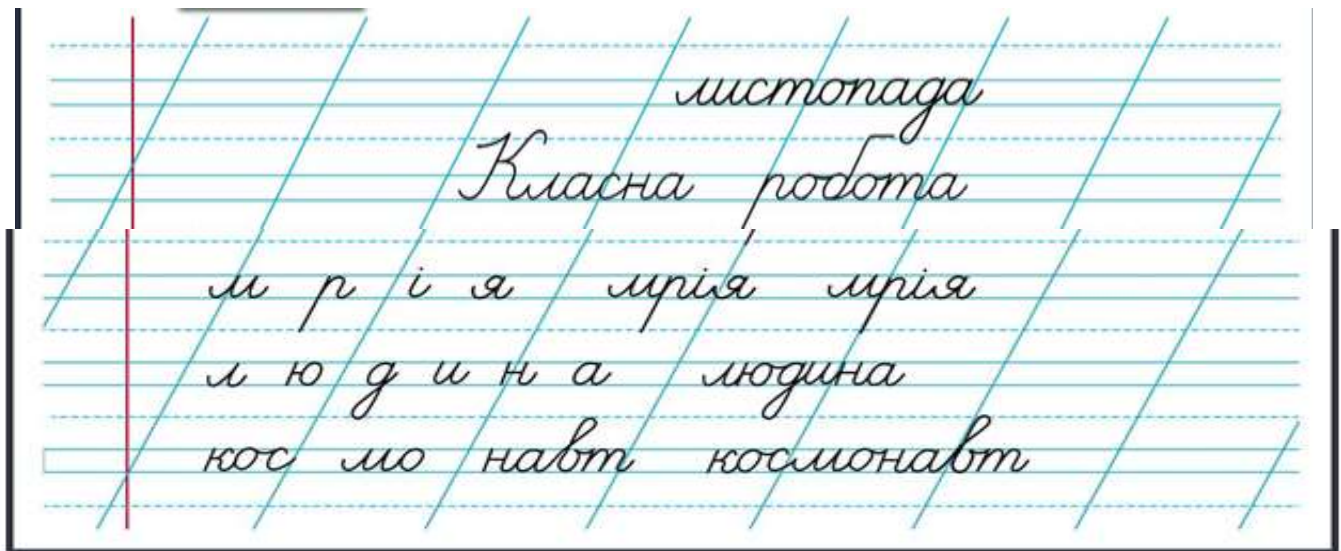 листопада
Класна робота
м р і я мрія мрія
л ю д и н а людина
кос мо навт космонавт